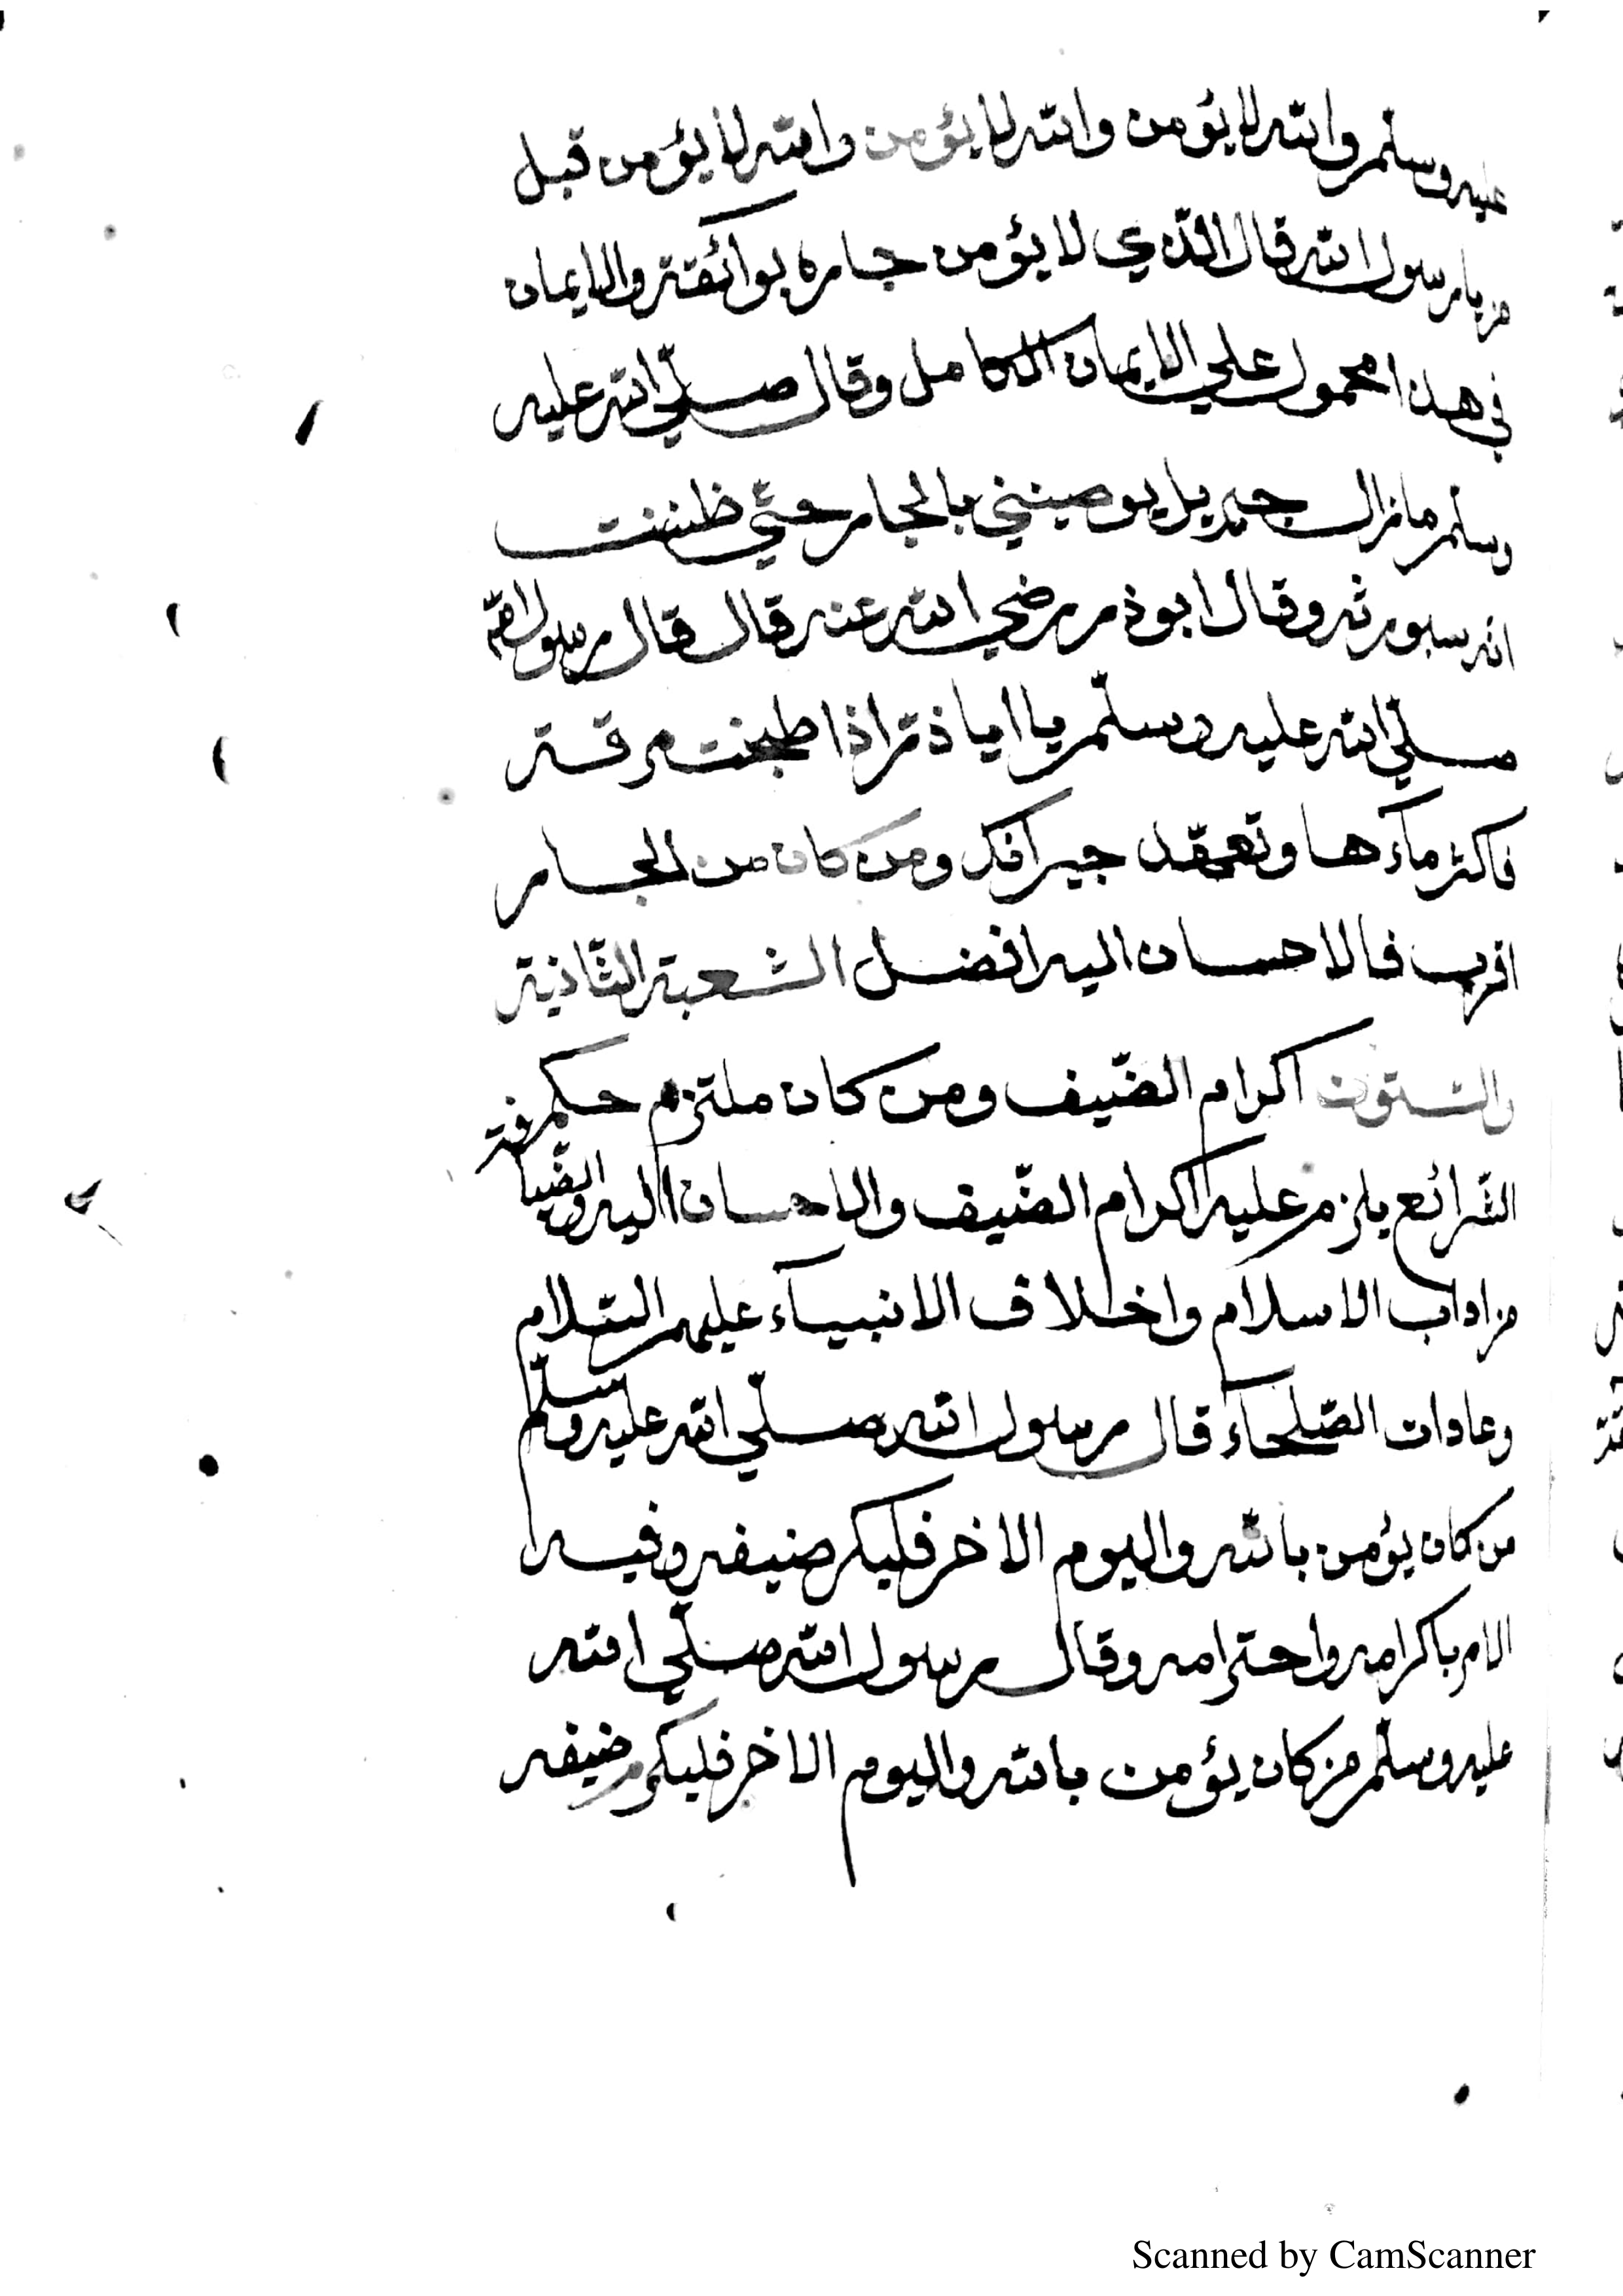 عليه وسلّم والله لا يؤمن والله لا يؤمن والله لا يؤمن قبل
من يا رسول الله قال الّذي لا يؤمن جاره بوائقه والايمان
في هذا محمول علي الايمان الكامل وقال صلّي الله عليه
وسلم ما زال جبريل يوصيني بالجار حتّي ظننت
انه سيورثه وقال ابوذر رضي الله عنه قال قال رسول الله
صلّي الله عليه وسلّم يا اباذرّ اذا طبخت مرقة
فاكثر ماءها وتعهّد جيرانك ومن كان من الجار
اقرب فالاحسان اليه افضل الشعبة الثّانية
والستّون اكرام الضّيف ومن كان ملتزم حكم
الشّرائع يلزم عليه اكرام الضّيف والاحسان اليه والضّيافة
من اداب الاسلام واخلاق الانبياء عليهم السّلام
وعادات الصّلحاء قال رسول الله صلّي الله عليه وسلّم
من كان يؤمن بالله واليوم الاخر فليكرم ضيفه وفيه
الامر باكرامه واحترامه وقال رسول الله صلّي الله
عليه وسلّم من كان يؤمن بالله واليوم الاخر فليكرم ضيفه
Scanned by CamScanner